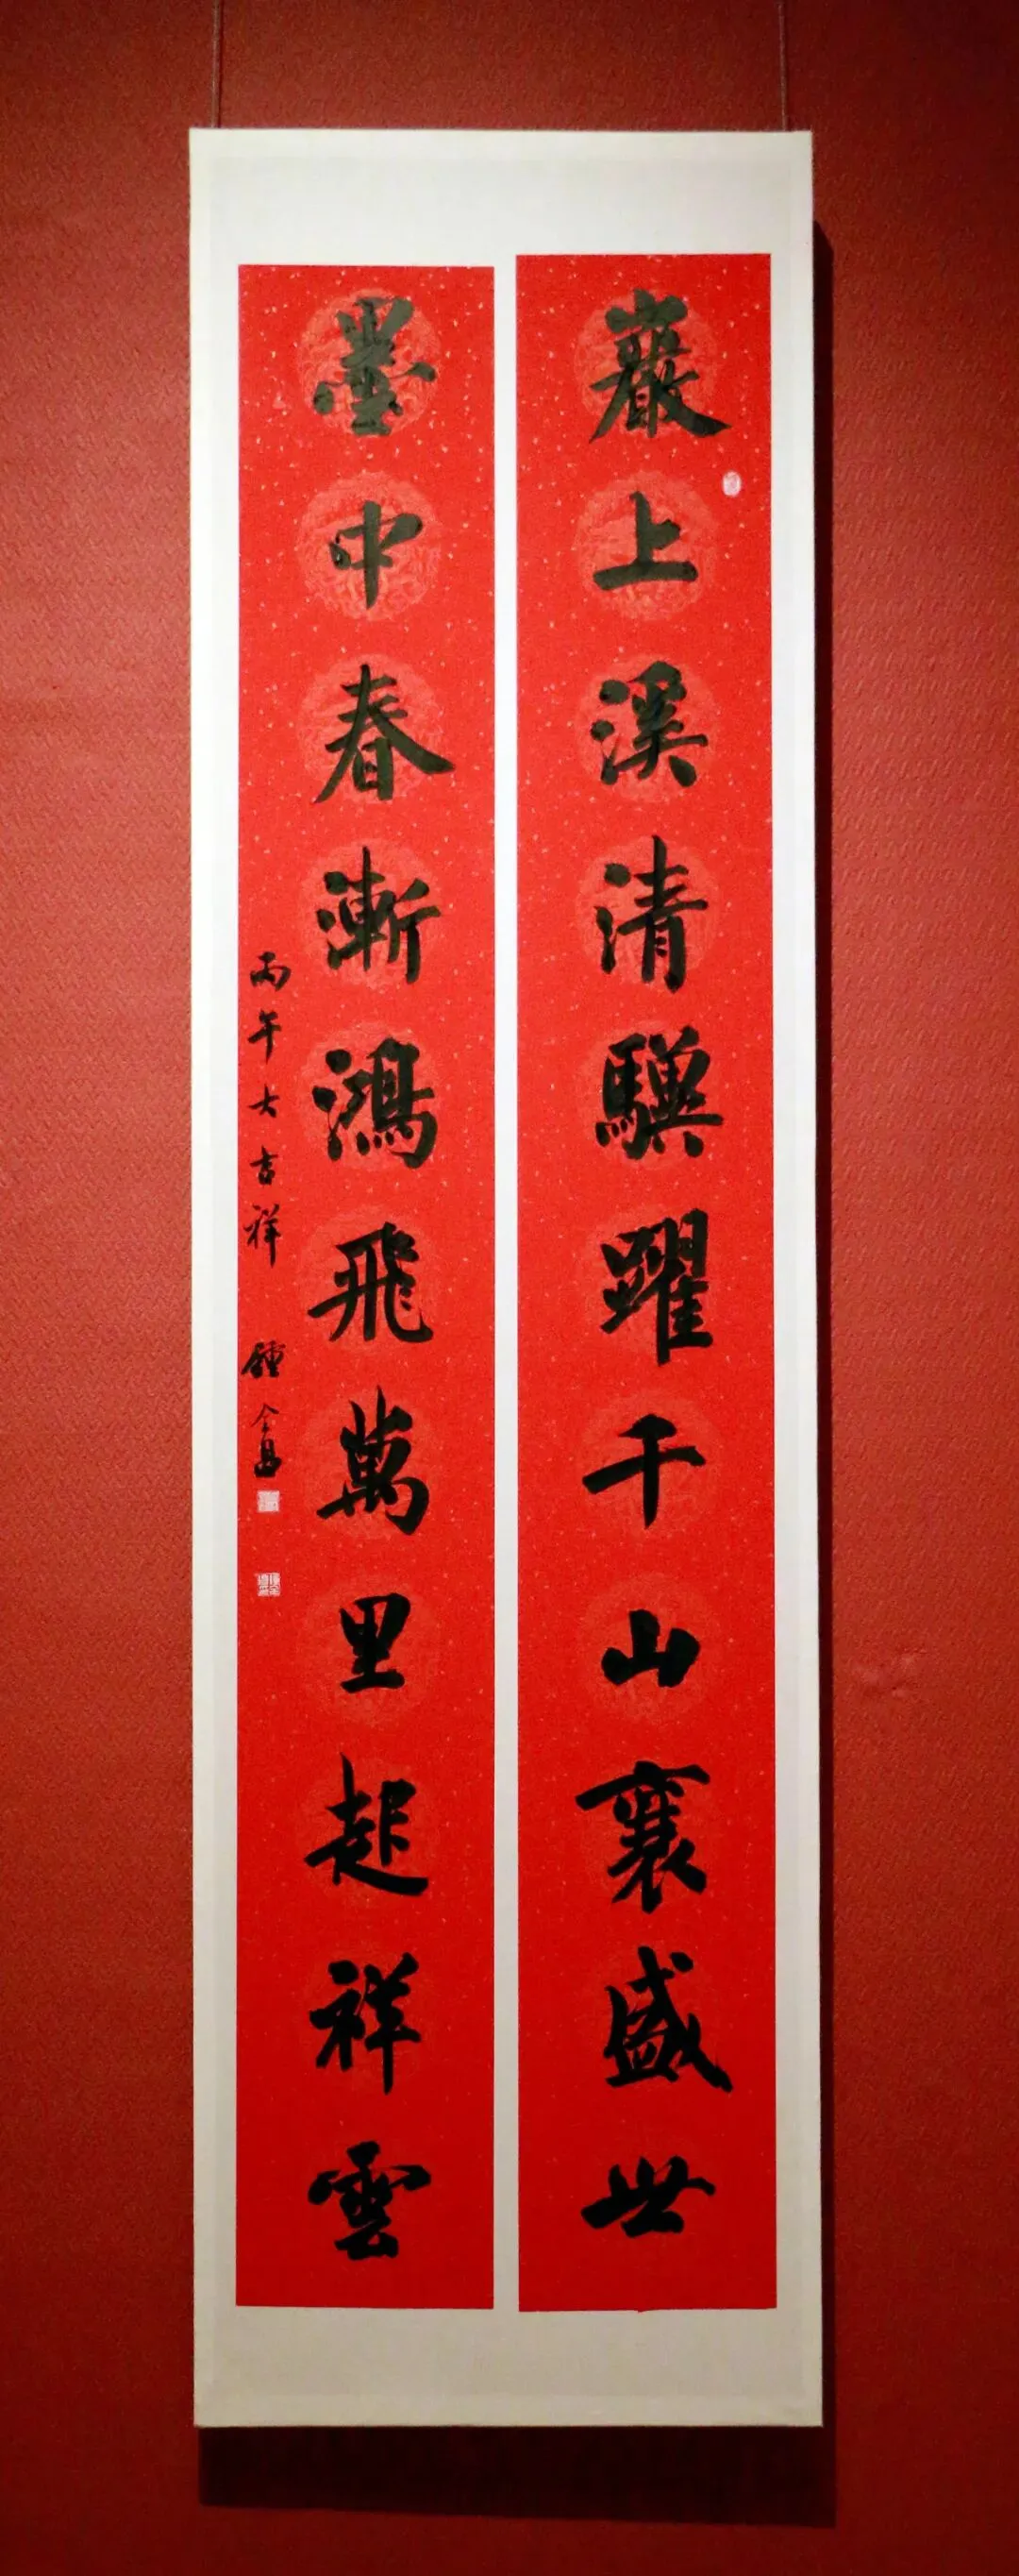 巖上溪清驥躍千山襄盛世
墨中春漸鴻飛萬里起祥雲
丙午大吉祥 鍾